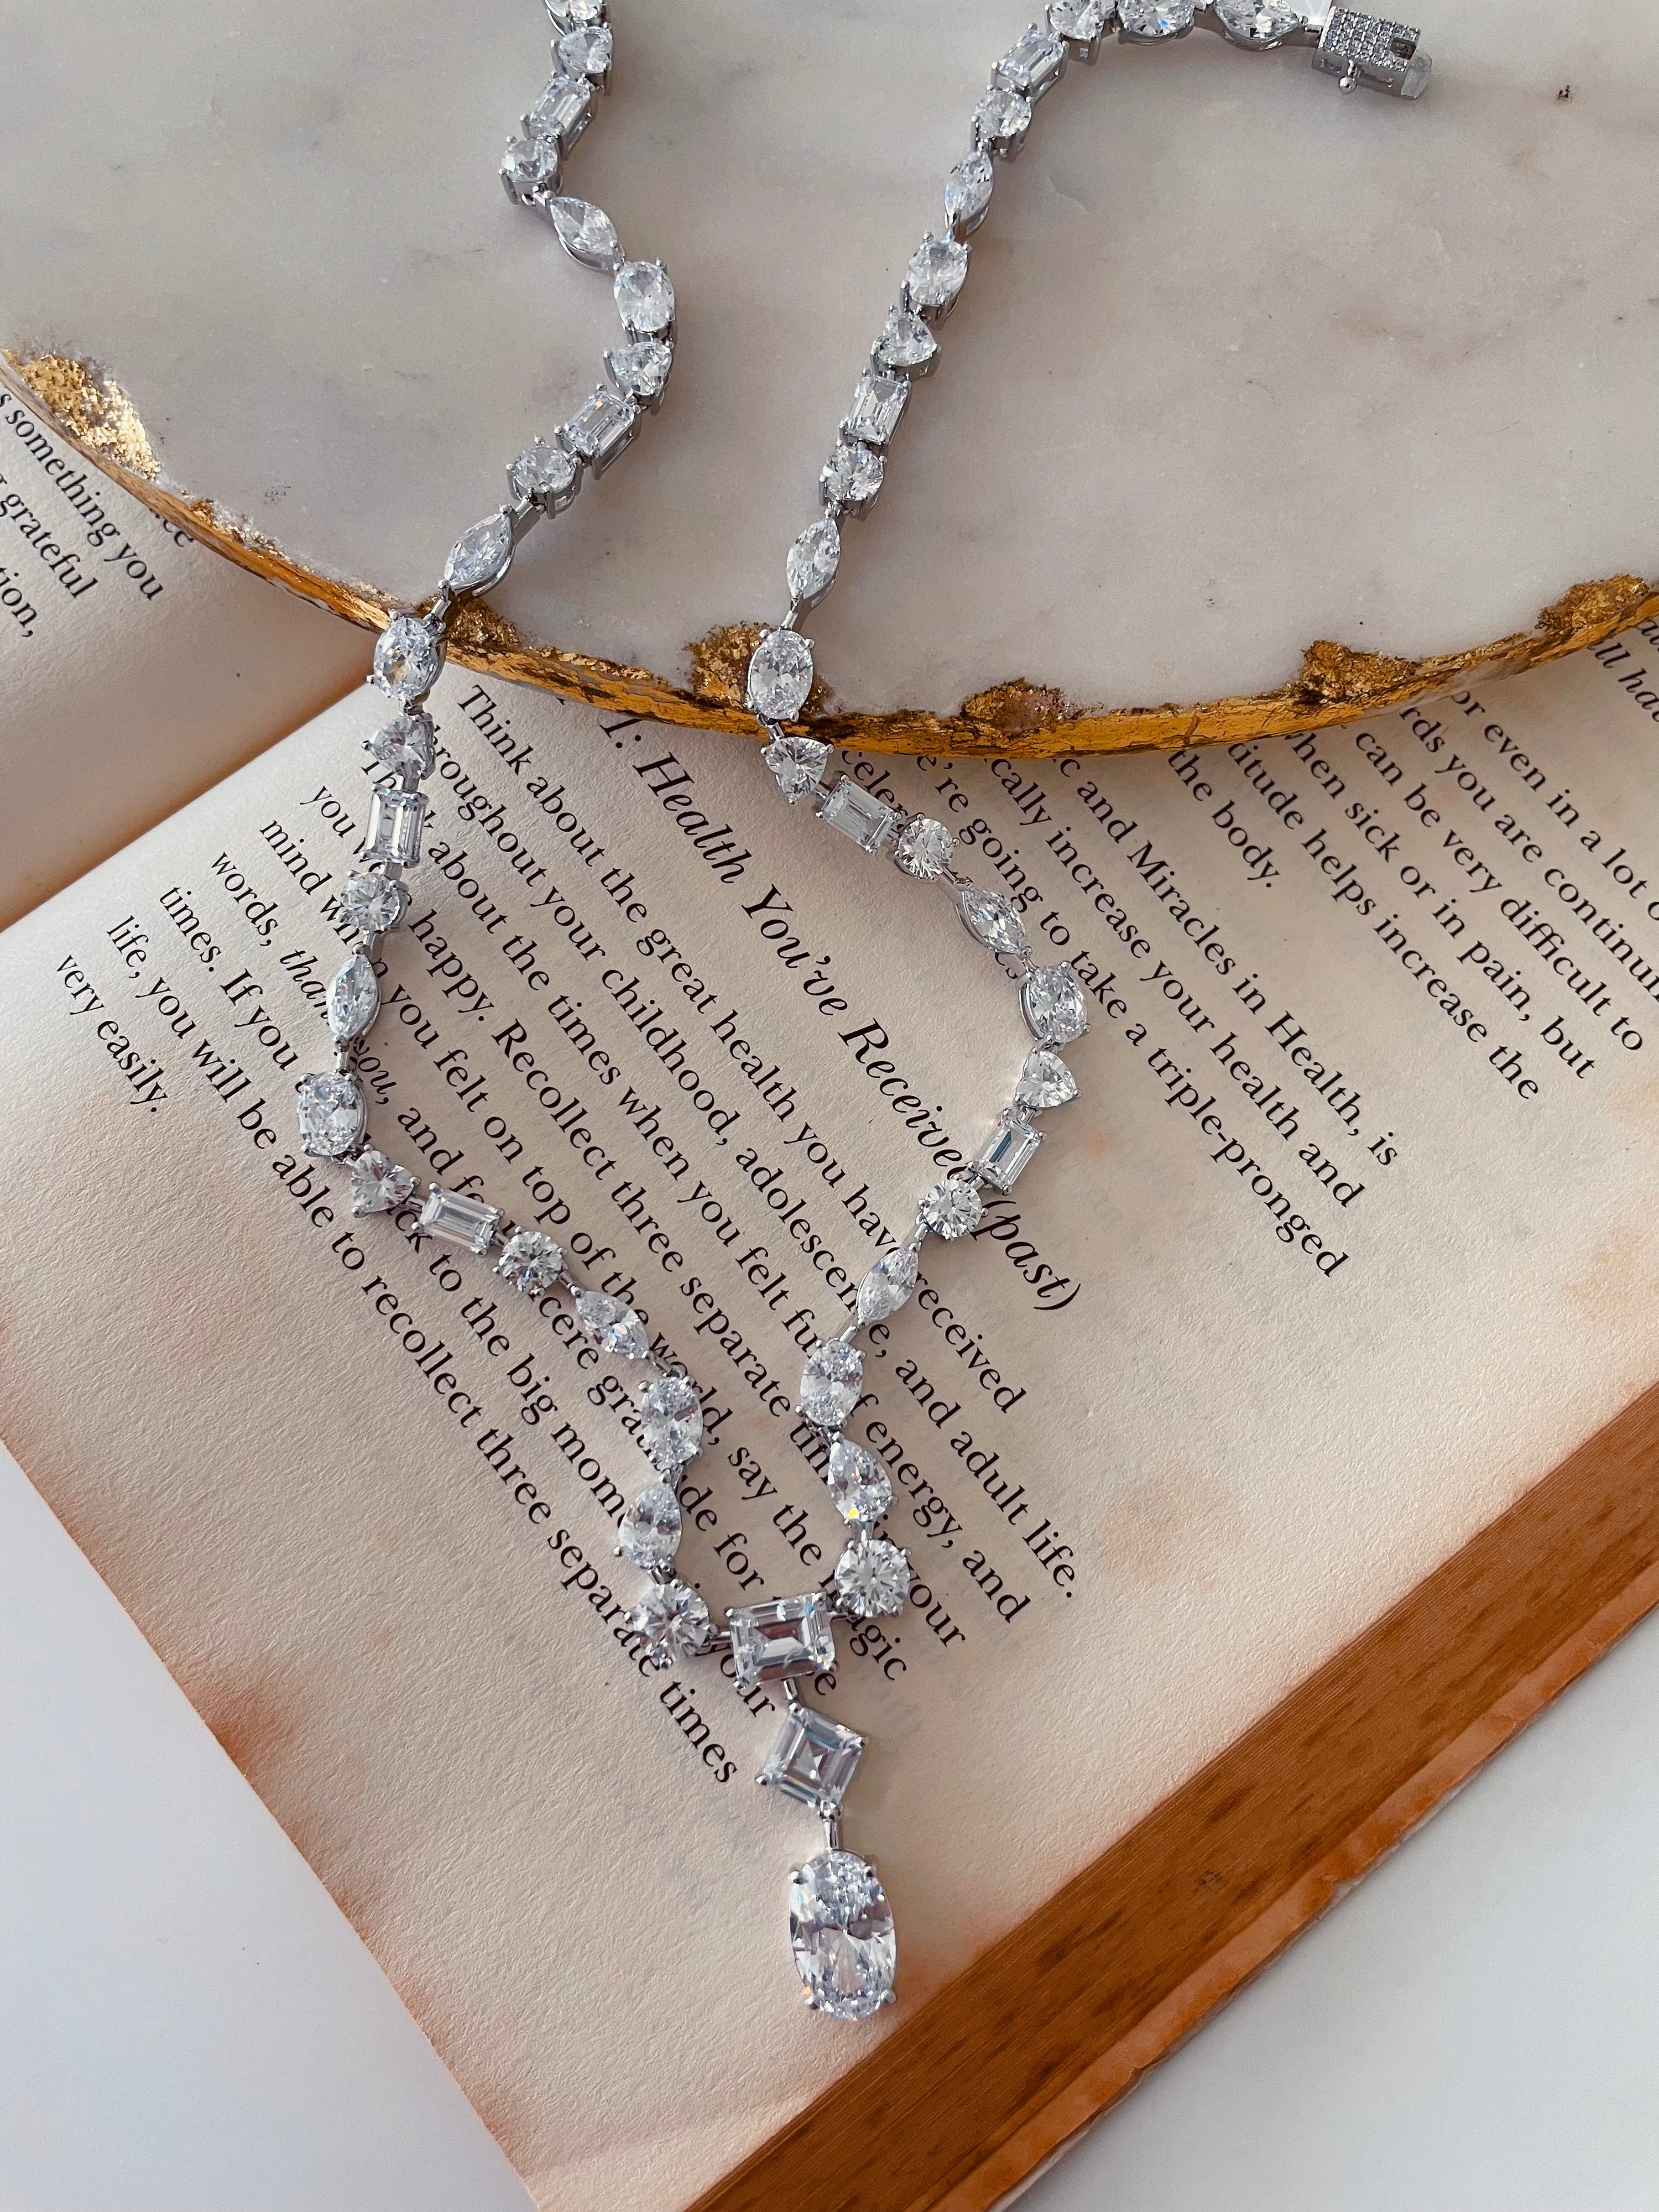 s something you
grateful
tion,
or even in a lot o
when sick or in pain, but
can be very difficult to
rds you are continu
titude helps increase the
the body.
c and Miracles in Health, is
cally increase your health and
e're going to take a triple-pronged
T: Health You've Received (past)
Think about the great health you have received
throughout your childhood, adolescence, and adult life.
Think about the times when you felt full of energy, and
you were happy. Recollect three separate times in your
mind when you felt on top of the world, say the magic
words, thank you, and feel sincere gratitude for those
times. If you think back to the big moments in your
life, you will be able to recollect three separate times
very easily.